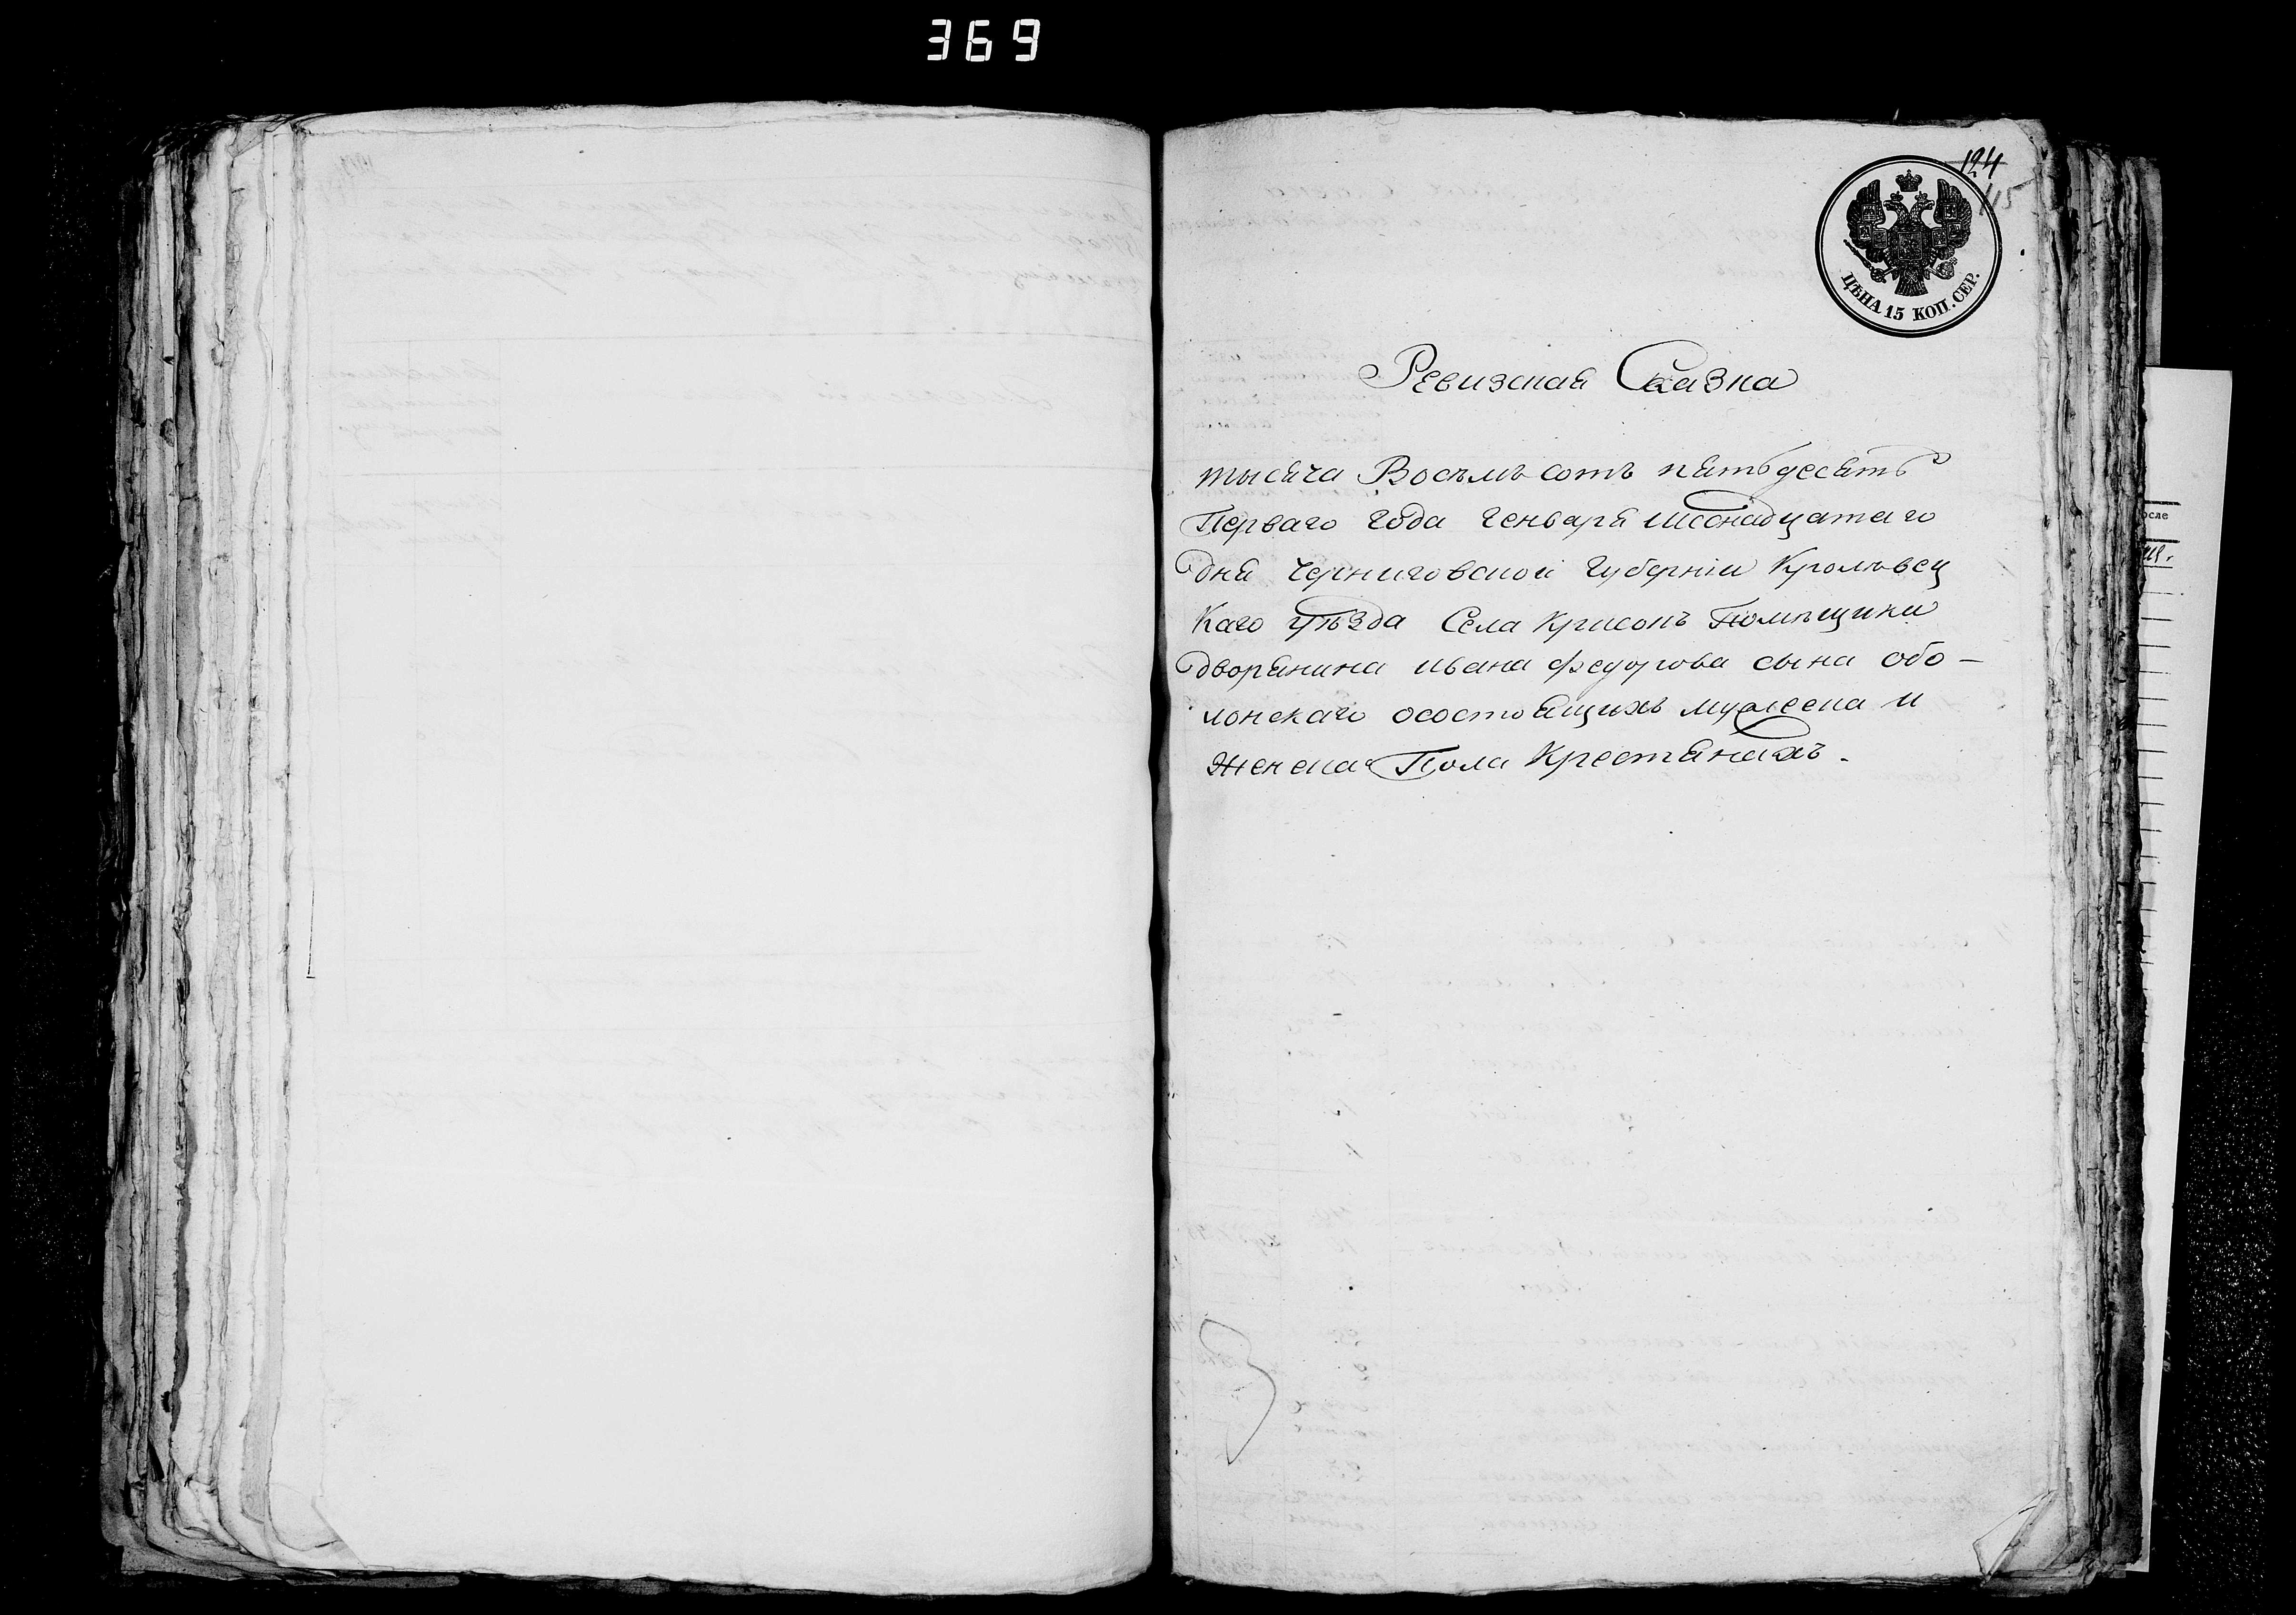 369
124
115
ЦѢНА 15 КОП. СЕР.
Ревизская Сказка
тысяча Восемь сотъ пятьдесятъ
Перваго года Генваря шеснадцатаго
дня Черниговской Губерніи Кролевец
каго уѣзда Села Крисокъ Помѣщика
дворянина ивана федорова сына обо-
лонскаго осостоящихъ мужеска и
женска Пола Крестянахъ.